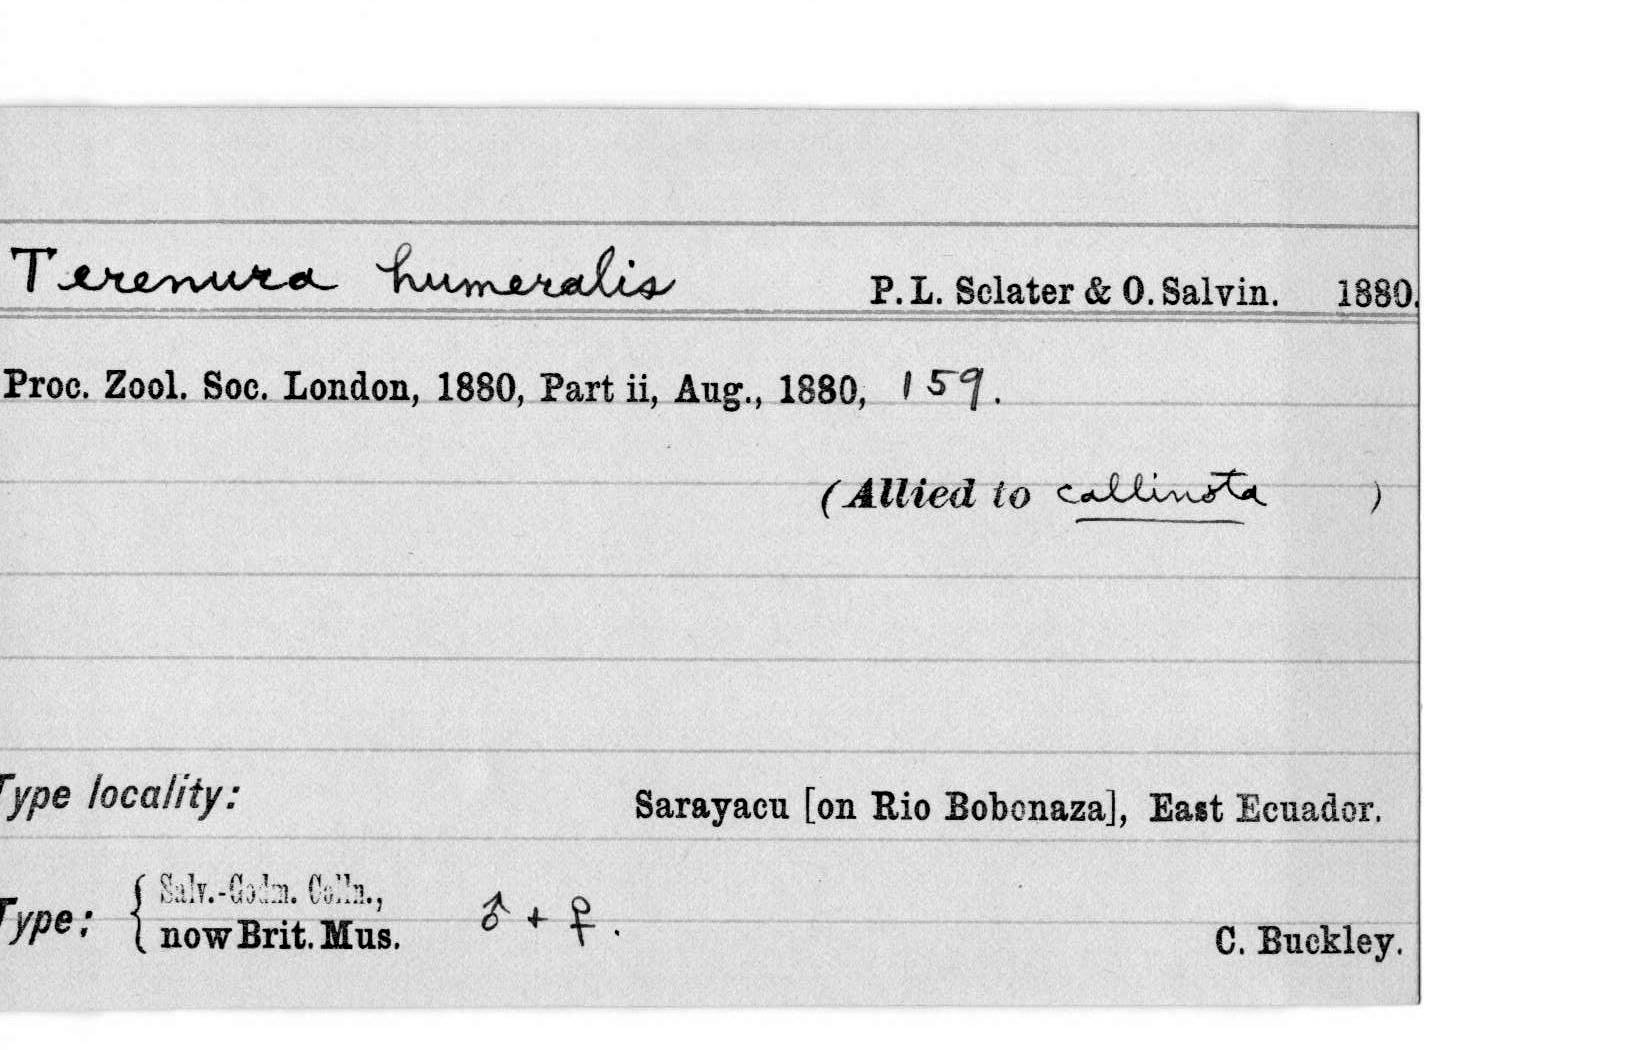 Terenura humeralis P. L. Sclater & O. Salvin. 1880.
Proc. Zool. Soc. London, 1880, Part ii, Aug., 1880, 159.
(Allied to callinota )
Type locality: Sarayacu [on Rio Bobonaza], East Ecuador.
Type: { Salv.-Godm. Colln.,
now Brit. Mus. ♂ + ♀. C. Buckley.